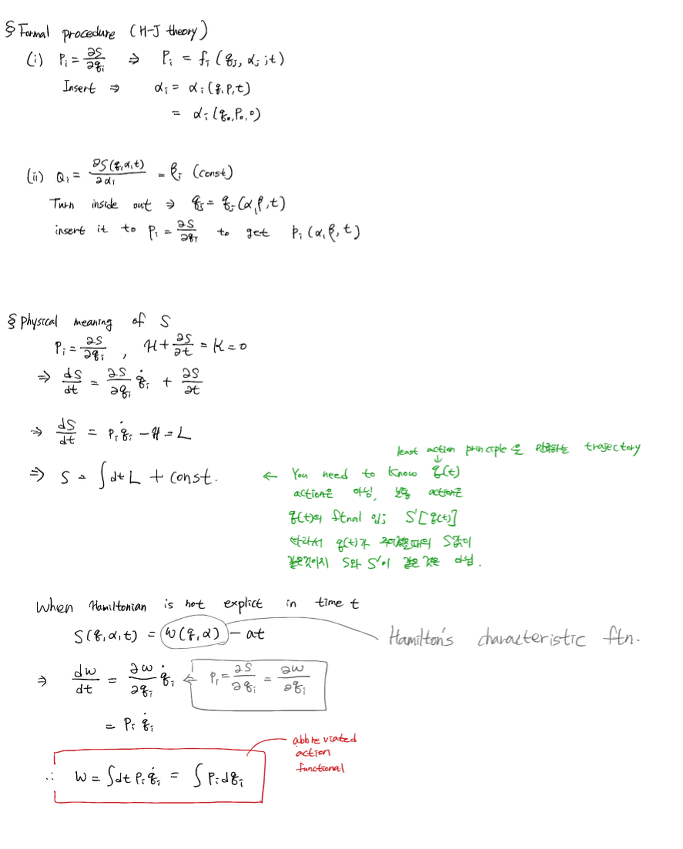 § Formal procedure (H-J theory)
(i) Pᵢ = ∂S/∂qᵢ ⇒ Pᵢ = fᵢ (qⱼ, αⱼ ; t)
Insert ⇒ αᵢ = αᵢ (q, P, t)
= αᵢ (q₀, P₀, 0)
(ii) Qᵢ = ∂S(q, α, t)/∂αᵢ = βᵢ (const)
Turn inside out ⇒ qⱼ = qⱼ (α, β, t)
insert it to Pᵢ = ∂S/∂qᵢ to get Pᵢ (α, β, t)
§ Physical meaning of S
Pᵢ = ∂S/∂qᵢ , H + ∂S/∂t = K = 0
⇒ dS/dt = ∂S/∂qᵢ q̇ᵢ + ∂S/∂t
⇒ dS/dt = Pᵢ q̇ᵢ - H = L
least action principle을 만족하는 trajectory
↓
⇒ S = ∫ dt L + const. ← You need to know q(t)
action은 아님, 보통 action은
q(t)의 ftnal 임; S'[q(t)]
따라서 q(t)가 주어졌을때의 S값이
같은것이지 S와 S'이 같은 것은 아님.
When Hamiltonian is not explict in time t
S(q, α, t) = W(q, α) - at
Hamilton's characteristic ftn.
⇒ dW/dt = ∂W/∂qᵢ q̇ᵢ ← Pᵢ = ∂S/∂qᵢ = ∂W/∂qᵢ
= Pᵢ q̇ᵢ
abbreviated
action
functional
∴ W = ∫ dt Pᵢ q̇ᵢ = ∫ Pᵢ dqᵢ